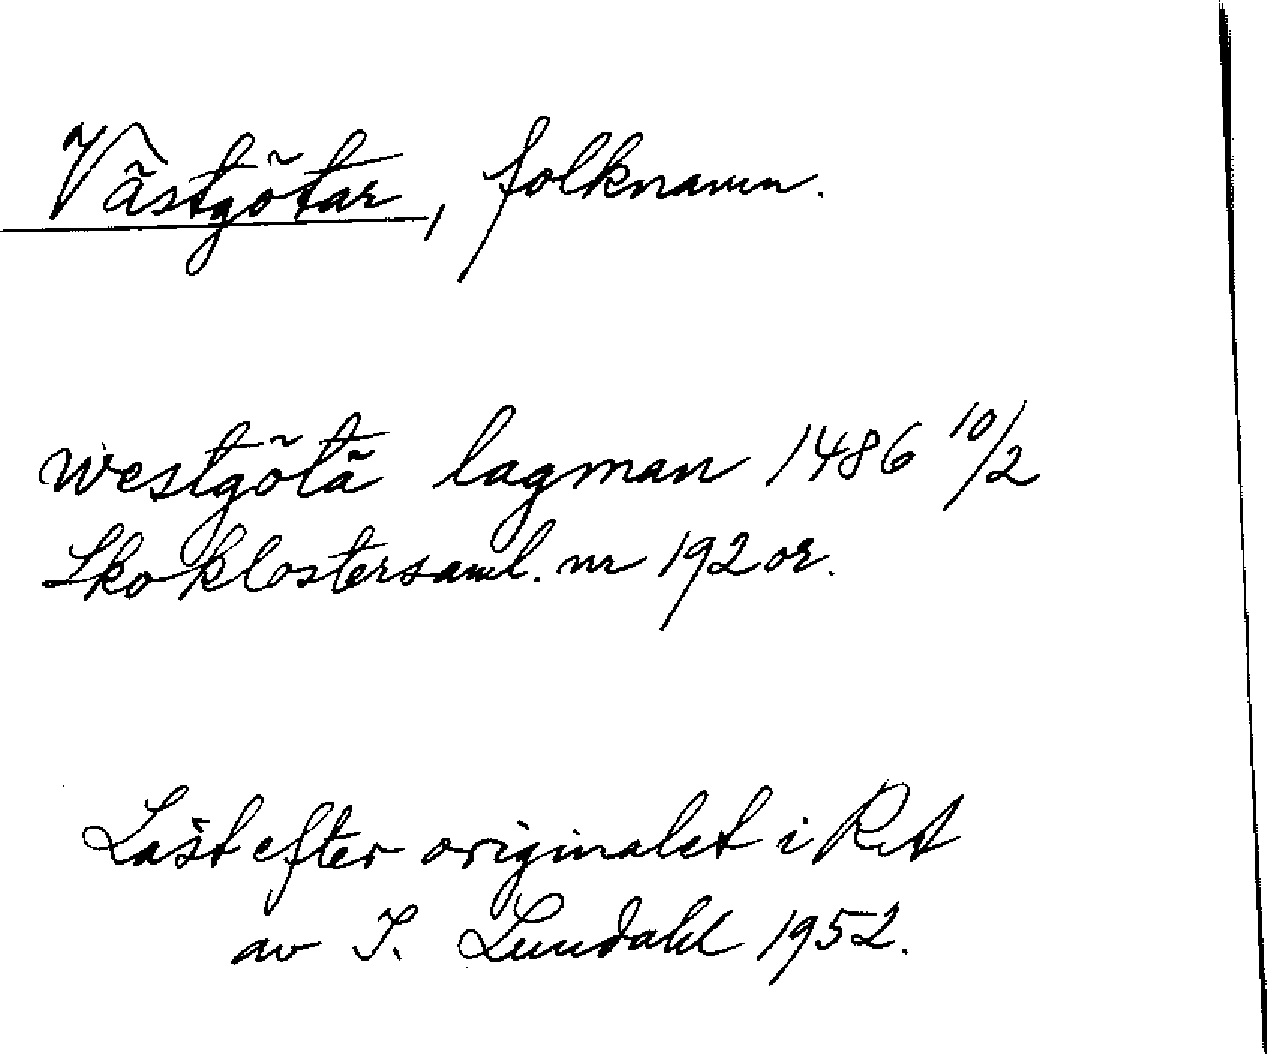 Västgötar, folknamn.
westgötä lagman 1486 10/2
Skoklostersaml. nr 192 or.
Läst efter originalet i RA
av I. Lundahl 1952.